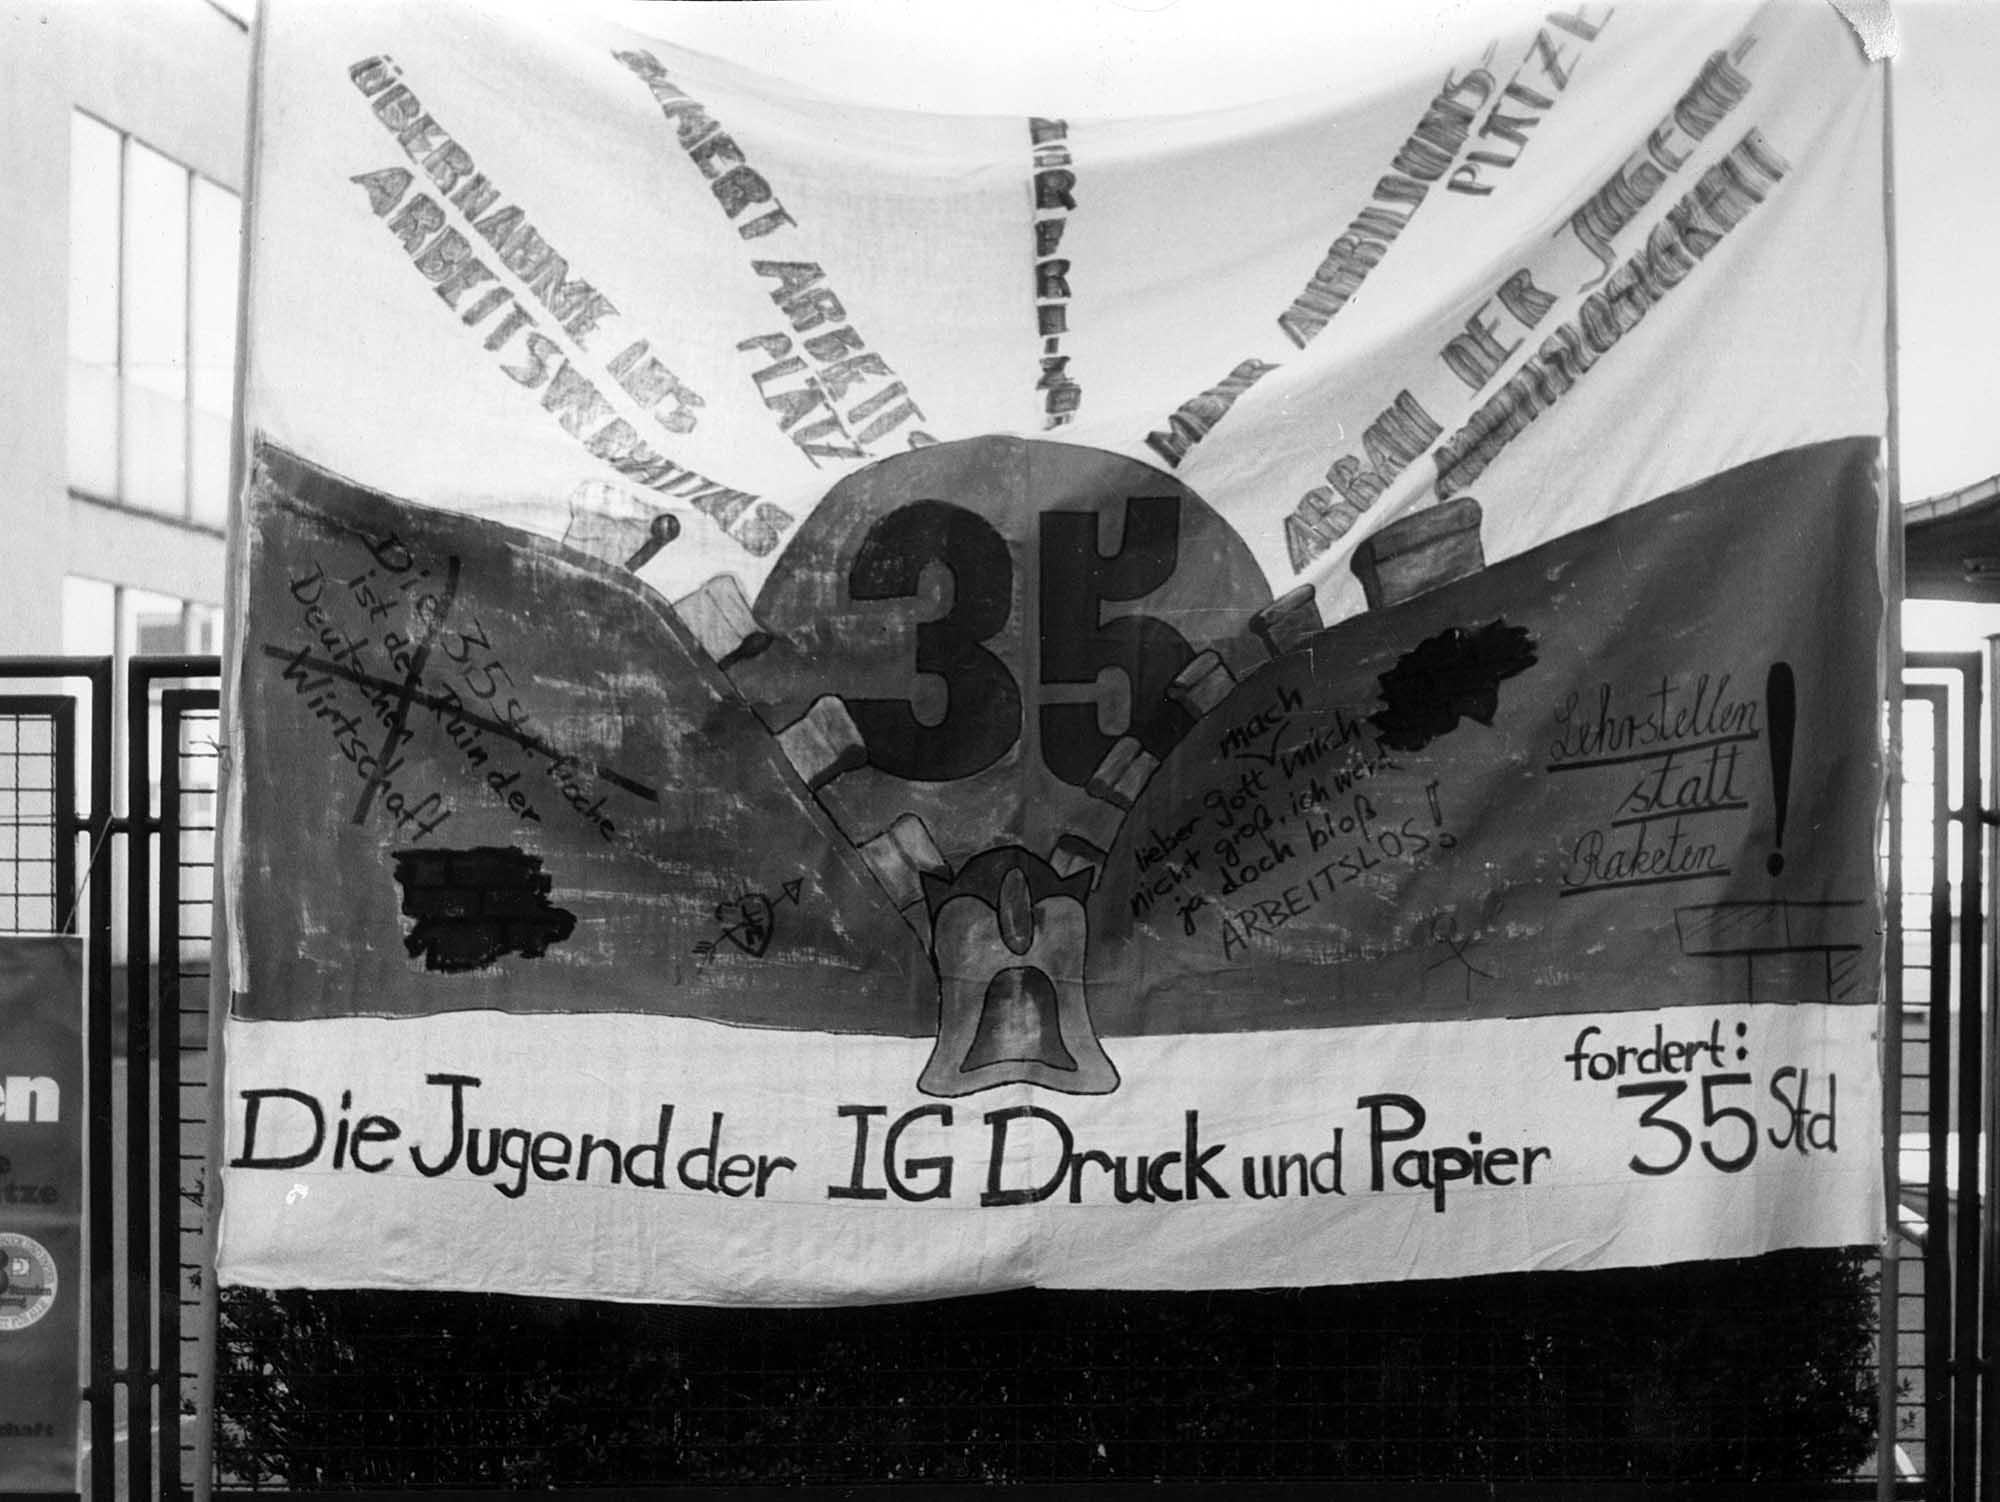 ÜBERNAHME INS
ARBEITS
ARBEITS
PLÄTZ
MEHR AUSBILDUNGS-
PLÄTZE
ABBAU DER JUGEND-
35
Die 35 Std. Woche
ist der Ruin der
Deutschen
Wirtschaft
mach
lieber gott mich
nicht groß, ich werd
ja doch bloß
ARBEITSLOS!
Lehrstellen
statt
Raketen
!
fordert:
Die Jugend der IG Druck und Papier 35 Std
en
tze